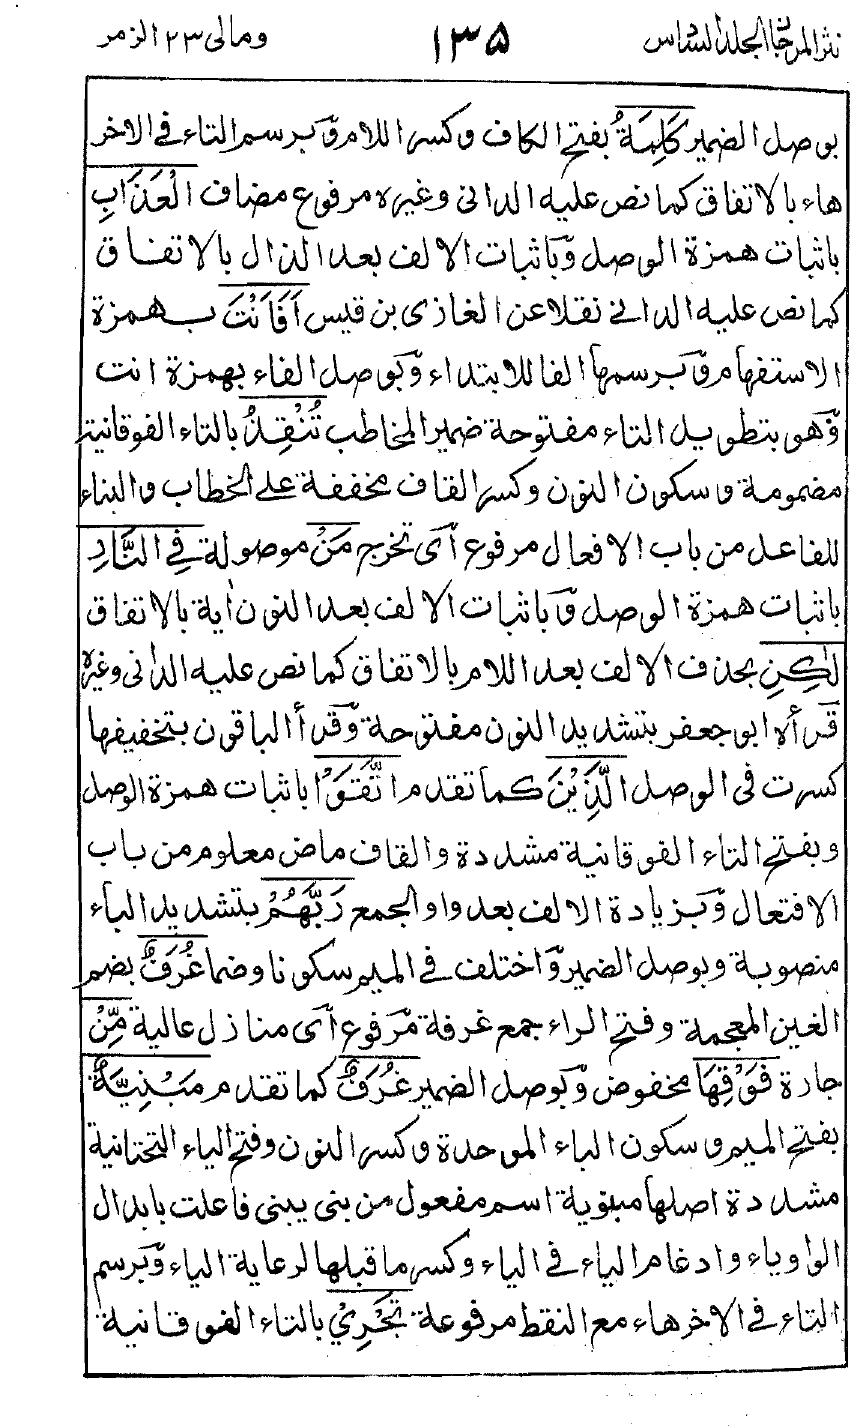 نثر المرجان المجلد السادس ١٣٥ ومالی ٢٣ الزمر
بوصل الضمير كَلِمَةُ بفتح الكاف وكسر اللام وبرسم التاء فى الاخر
هاء بالاتفاق كما نص عليه الدانى وغيره مرفوع مضاف الْعَذَابِ
باثبات همزة الوصل وباثبات الالف بعد الذال بالاتفاق
كما نص عليه الدانى نقلا عن الغازى بن قيس اَفَاَنْتَ بهمزة
الاستفهام وبرسمها الفا للابتداء وبوصل الفاء بهمزة انت
وهو بتطويل التاء مفتوحة ضمير المخاطب تُنْقِذُ بالتاء الفوقانية
مضمومة وسكون النون وكسر القاف مخففة على الخطاب والبناء
للفاعل من باب الافعال مرفوع اى تخرج مَنْ موصولة فِى النَّارِ
باثبات همزة الوصل وباثبات الالف بعد النون اية بالاتفاق
لٰكِنِ بحذف الالف بعد اللام بالاتفاق كما نص عليه الدانى وغيره
قرأه ابو جعفر بتشديد النون مفتوحة وقرأ الباقون بتخفيفها
كسرت فى الوصل الَّذِيْنَ كما تقدم اتَّقَوْا باثبات همزة الوصل
وبفتح التاء الفوقانية مشددة والقاف ماض معلوم من باب
الافتعال وبزيادة الالف بعد واو الجمع رَبَّهُمْ بتشديد الباء
منصوبة وبوصل الضمير واختلف فى الميم سكونا وضما غُرَفٌ بضم
الغين المعجمة وفتح الراء جمع غرفة مرفوع اى منازل عالية مِّنْ
جارة فَوْقِهَا مخفوض وبوصل الضمير غُرَفٌ كما تقدم مَبْنِيَّةٌ
بفتح الميم وسكون الباء الموحدة وكسر النون وفتح الياء التحتانية
مشددة اصلها مبنوية اسم مفعول من بنى يبنى فاعلت بابدال
الواو ياء وادغام الياء فى الياء وكسر ما قبلها لرعاية الياء وبرسم
التاء فى الاخر هاء مع النقط مرفوعة تَجْرِيْ بالتاء الفوقانية